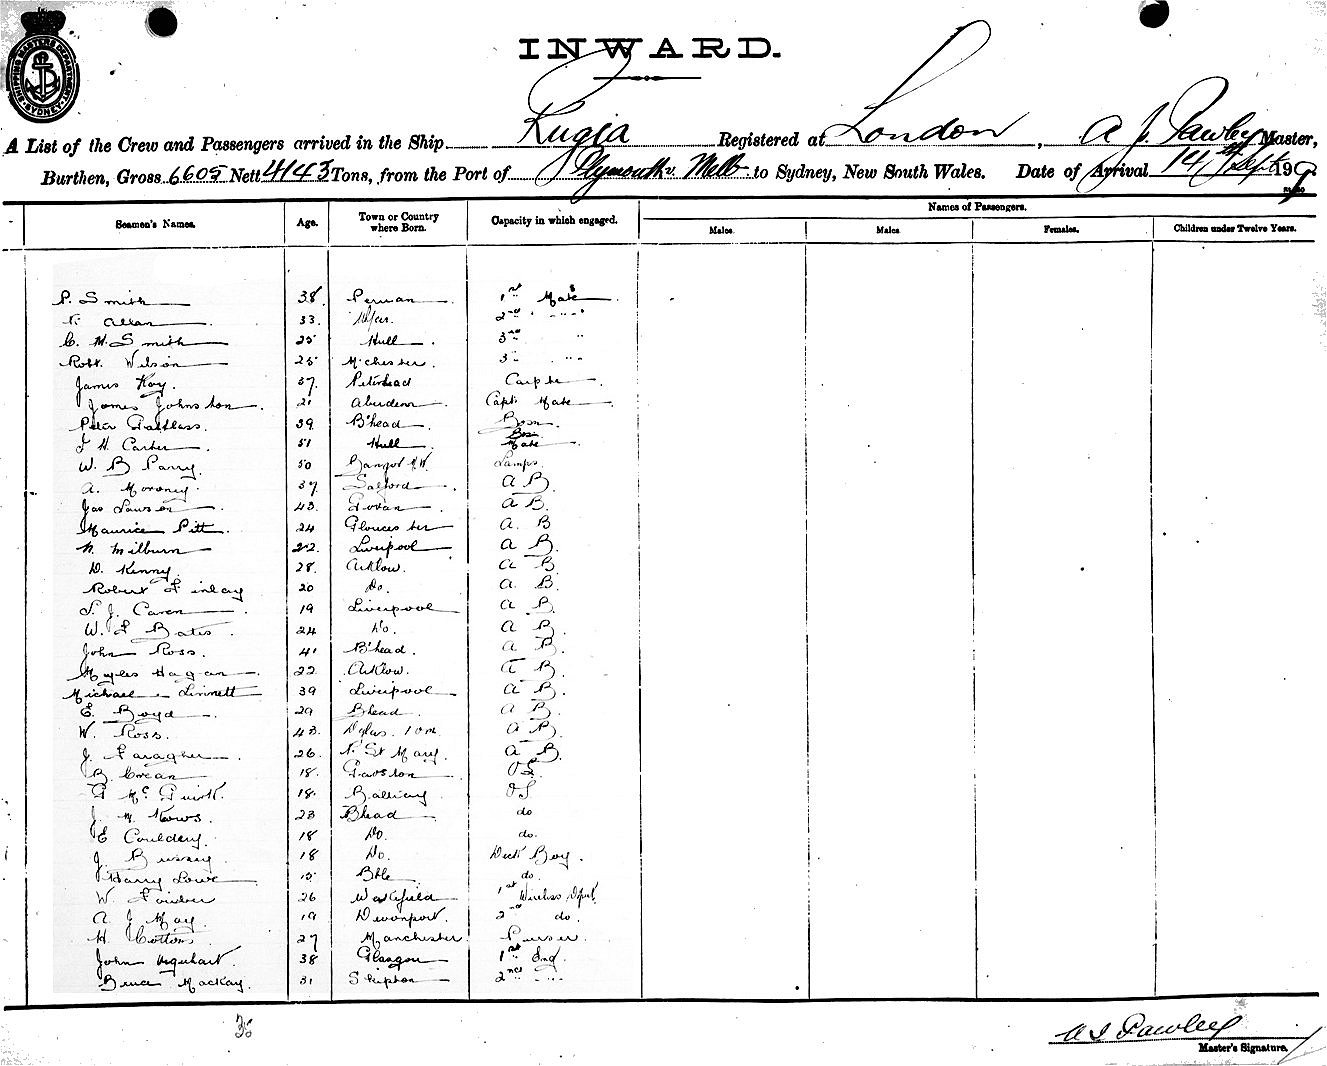 SHIPPING MASTERS DEPARTMENT SYDNEY
INWARD.
A List of the Crew and Passengers arrived in the Ship Rugia Registered at London, A J. Pawley Master,
Burthen, Gross 6605 Nett 4143 Tons, from the Port of Plymouth v Melb to Sydney, New South Wales. Date of Arrival 14th Sept 19
Names of Passengers.
Seamen's Names. Age. Town or Country where Born. Capacity in which engaged. Males. Males Females. Children under Twelve Years.
P. Smith 38 1st Mate
Allan 33. 2nd " "
C. H. Smith 25 Hull 3rd "
Robt. Wilson 25 M'chester. 3rd " "
James Kay. 37. Peterhead
James Johnston. 21 Aberdeen Mate
Peter 39 B'head Bosn.
J H Carter 51 Hull Bosn Mate
W. B Parry. 50 Bangor N.W. Lamps.
A. Moroney 37 Salford A B.
Jas Lawson 43. Govan A B.
Maurice Pitt. 24 Gloucester A. B
N. Milburn 22. Liverpool A B.
D. Kenny 28. Arklow. A B
Robert Finlay 20 Do. A. B.
J. Caren 19 Liverpool A B
W. F Bates. 24 Do. A B.
John Ross. 41 B'head. A B
Myles Hagan 22 Arklow. A B.
Michael Linnett 39 Liverpool A B.
E. Boyd 29 Bhead A B.
W. Ross. 43. Dglas. I o m. A B.
J. Faragher 26. P. St Mary. A B.
B. Crean 18. Garston O S.
Mc Guirk. 18. O S
J. H. 23 Bhead do
E Couldery. 18 Do. do.
J. 18 Do. Deck Boy.
Harry Lowe 15 Btle do.
W. Fowler 26 Wakefield 1st Wireless Oprt.
A. J May. 19 Devonport. 2nd do.
H. Cottom 27 Manchester. Purser.
John Urquhart. 38 Glasgow 1st Eng.
Bruce Mackay. 31 Skipton 2nd " "
A J Pawley
Master's Signature.